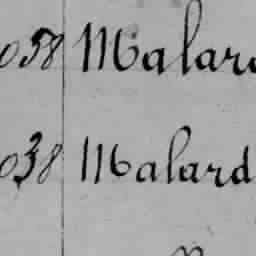 058 Malard
038 Malard